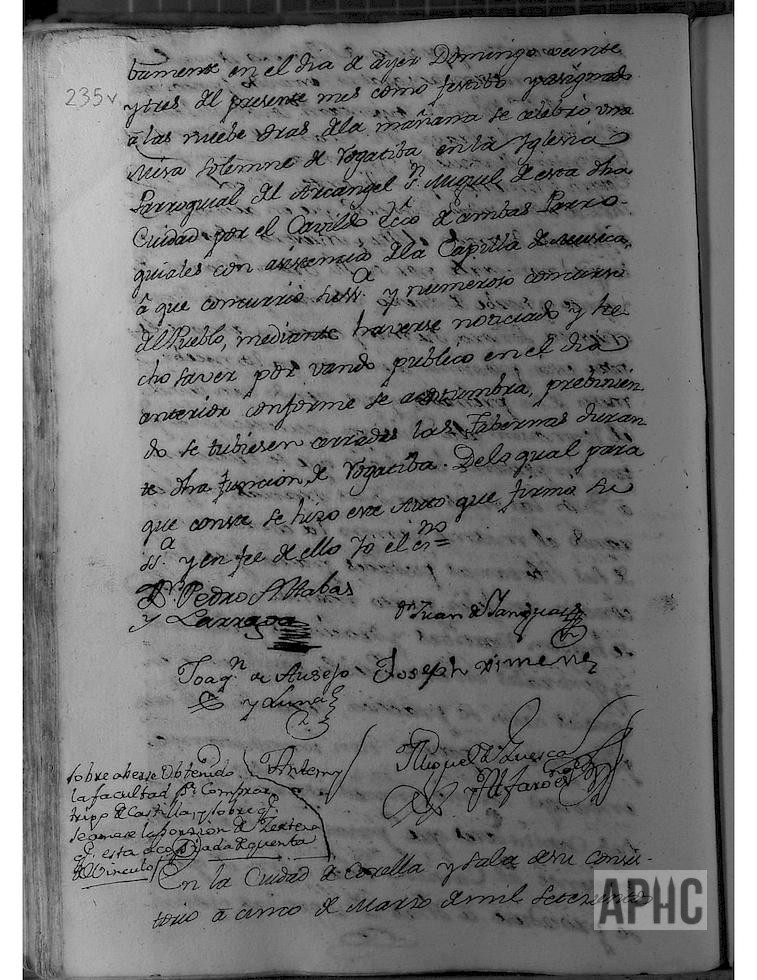 235v
bamente en el dia de ayer Domingo veinte
y tres del presente mes como festibo y asignado
a las nuebe oras de la mañana se celebró una
Misa solemne de Rogatiba en la Yglesia
Parroquial del Arcangel Sn. Miguel de esta dha
Ciudad por el Cavildo Ecco. de ambas Parro-
quiales con asistencia de la Capilla de Musica,
â que concurrio su ssa. y numeroso concurso
del Pueblo, mediante haverse noticiado y he
cho saver por vando publico en el dia
anterior conforme se acostumbra, prebinien
do se tubiesen cerradas las Tabernas duran
te dha funcion de Rogatiba. De la qual para
que conste se hizo este Auto que firmó su
ssa. y en fee de ello Yo el essno=
Dn. Pedro Attabas
y Larraga
Dn. Juan de
Joaqn. de Ausejo
y Luna
Joseph Ximenez
Antemy
Miguel de Luesca
Alfaro
sobre aberse Obtenido
la facultad pa. Comprar
trigo de Castilla, y sobre q.
se amase la porzion de
q. esta de quenta
del Vinculo
En la Ciudad de Corella y sala de su consis-
torio â cinco de Marzo de mil setecientos
APHC